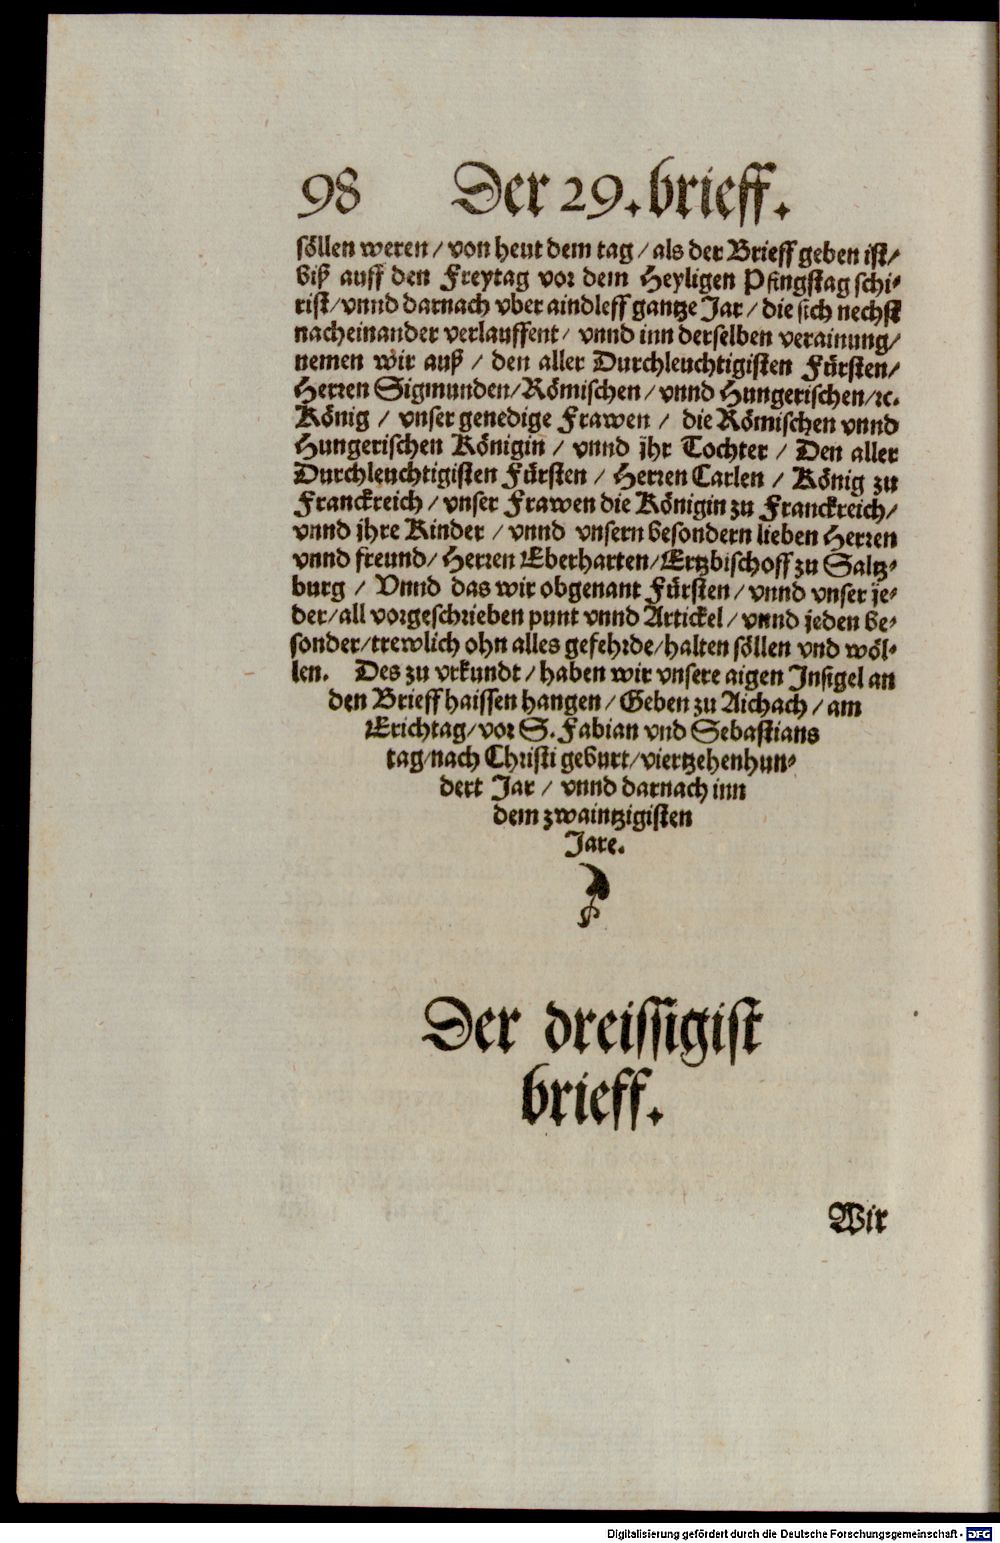 98 Der 29. brieff.
söllen weren / von heut dem tag / als der Brieff geben ist /
biß auff den Freytag vor dem Heyligen Pfingstag schi-
rist / vnnd darnach vber aindleff gantze Jar / die sich nechst
nacheinander verlauffent / vnnd inn derselben verainung /
nemen wir auß / den aller Durchleuchtigisten Fürsten /
Herren Sigmunden / Römischen / vnnd Hungerischen / ꝛc.
König / vnser genedige Frawen / die Römischen vnnd
Hungerischen Königin / vnnd jhr Tochter / Den aller
Durchleuchtigisten Fürsten / Herren Carlen / König zu
Franckreich / vnser Frawen die Königin zu Franckreich /
vnnd jhre Kinder / vnnd vnsern besondern lieben Herren
vnnd freund / Herren Eberharten / Ertzbischoff zu Saltz-
burg / Vnnd das wir obgenant Fürsten / vnnd vnser je-
der / all vorgeschrieben punt vnnd Artickel / vnnd jeden be-
sonder / trewlich ohn alles gefehrde / halten söllen vnd wöl-
len. Des zu vrkundt / haben wir vnsere aigen Insigel an
den Brieff haissen hangen / Geben zu Aichach / am
Erichtag / vor S. Fabian vnd Sebastians
tag / nach Christi geburt / viertzehenhun-
dert Jar / vnnd darnach inn
dem zwaintzigisten
Jare.
Der dreissigist
brieff.
Wir
Digitalisierung gefördert durch die Deutsche Forschungsgemeinschaft - DFG